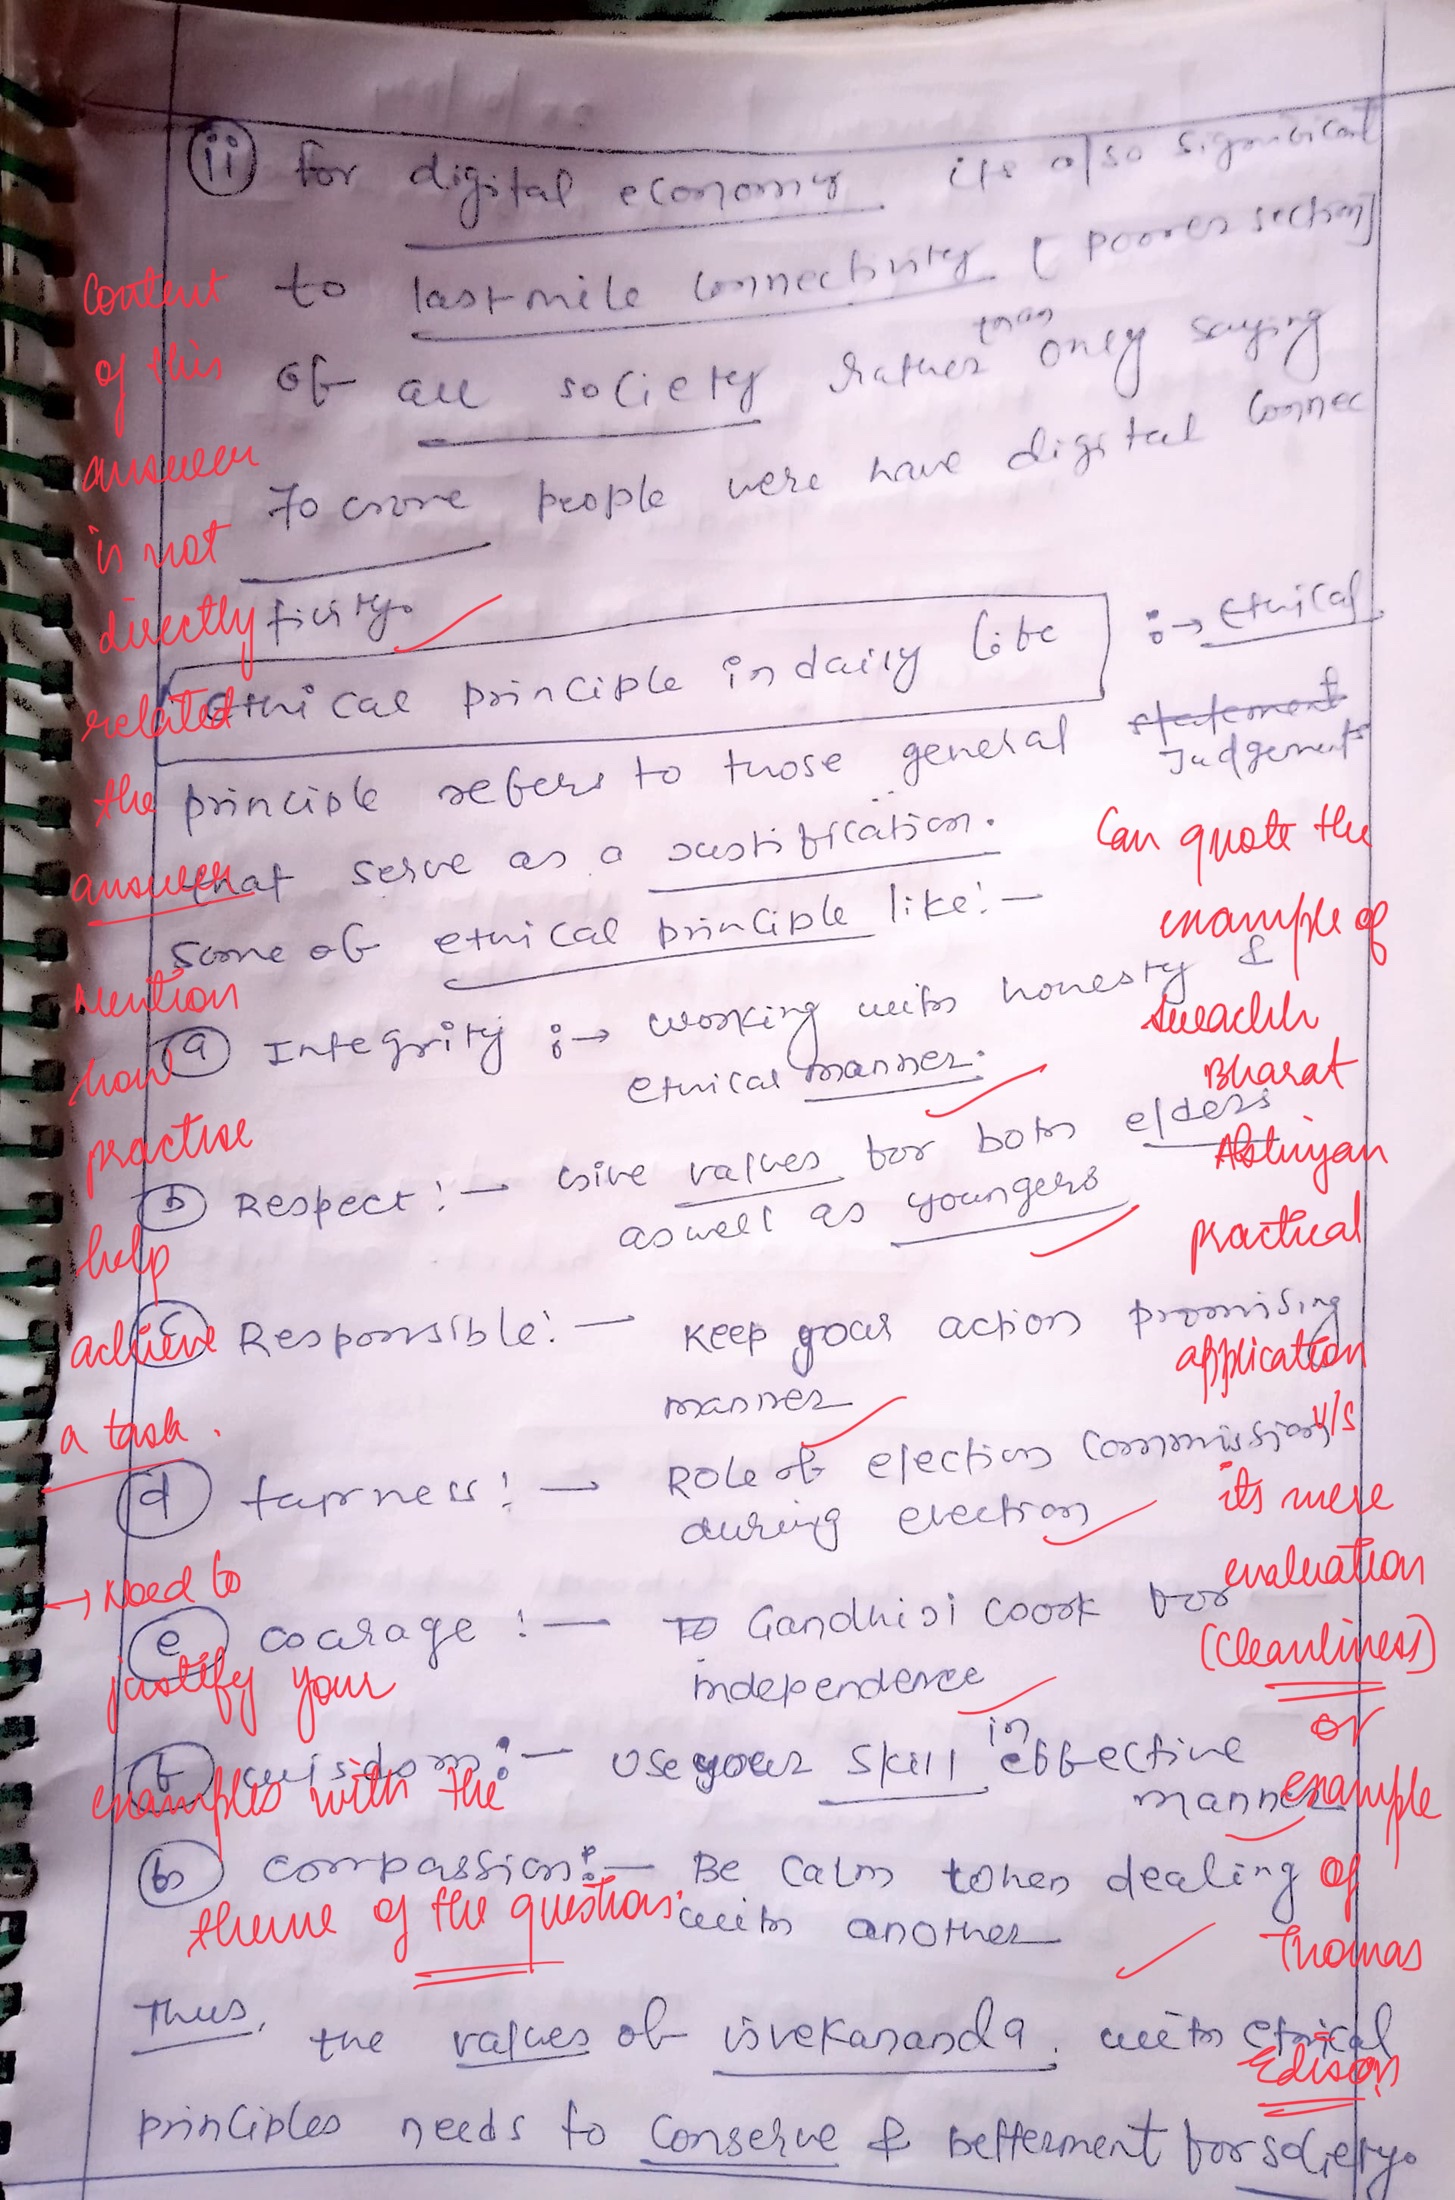 (ii) for digital economy its also significant
to last mile connectivity [poorer section]
of all society rather than only saying
70 crore people were have digital connec
tivity.
Ethical principle in daily life :→ Ethical
principle refers to those general statement Judgements
that serve as a justification.
some of ethical principle like:-
(a) Integrity :→ working with honesty &
ethical manner.
(b) Respect:- Give values for both elders
aswell as youngers
(c) Responsible:- Keep your action promising
manner
(d) fairness:- Role of election commission
during election
(e) courage :- Gandhiji for
independence
(f) wisdom:- Use your skill in effective
manner
compassion:- Be calm when dealing
with another
Thus, the values of vivekananda. with ethical
principles needs to conserve & betterment for society.
Content
of this
answer
is not
directly
related
the
answer
Mention
how
practise
help
achieve
a task.
→ Need to
justify your
examples with the
theme of the question.
Can quote the
example of
Swachh
Bharat
Abhiyan
practical
application
v/s
its mere
evaluation
(Cleanliness)
or
example
of
Thomas
Edison